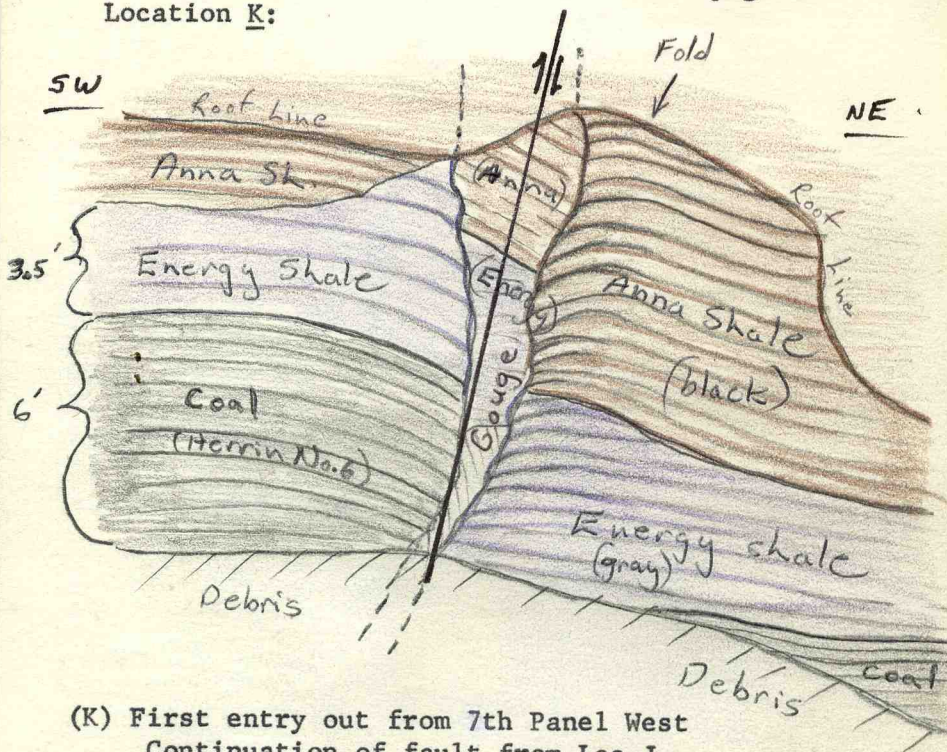 Location K:
SW
Fold
NE
Roof Line
Anna Sh.
(Anna)
Roof Line
3.5'
Energy Shale
(Energy)
Anna Shale
(black)
Gouge
6'
Coal
(Herrin No. 6)
Energy shale
(gray)
Debris
Debris
Coal
(K) First entry out from 7th Panel West
Continuation of fault from Loc J